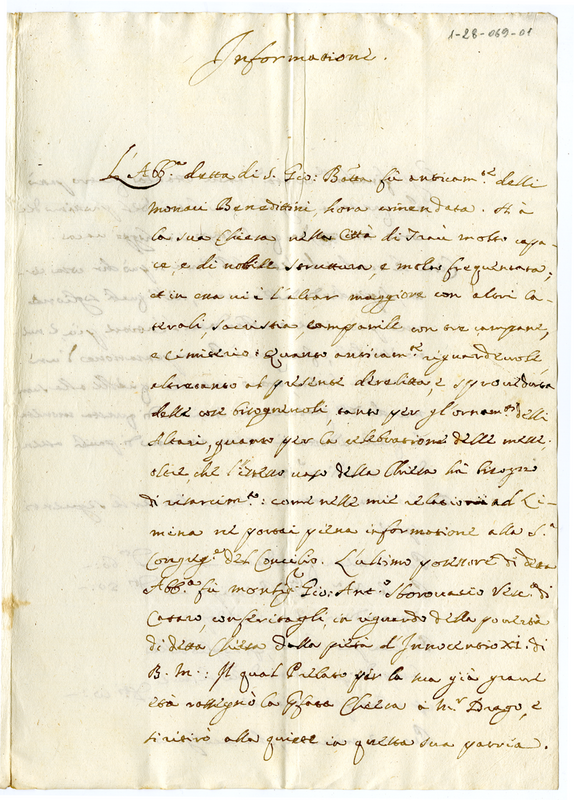 1-28-069-01
Informatione.
L'Abb.a detta di S. Gio: Batta fù anticam.te delli
Monaci Benedittini, hora comendata. Hà
la sua Chiesa nella Città di Traù molto capa-
ce, e di nobile struttura, e molto frequentata;
et in essa vi è l'altar maggiore con altri la-
terali, sacristia, campanile con tre campane,
e cimiterio: Quanto anticam.te riguardevole
altretanto al presente derelitta, e sproveduta
delle cose bisognevoli, tanto per gl'ornam.ti delli
Altari, quanto per la celebratione delle messe;
oltre, che l'istesso vaso della Chiesa hà bisogno
di risarcim.to: come nelle mie relationi ad Li-
mina ne portai piena informatione alla S.a
Congreg.ne del Concilio. L'ultimo possessore di detta
Abb.a fù monsig.r Gio: Ant.o Sborovacio Vesc.o di
Cataro, conferitagli, in riguardo della povertà
di detta Chiesa dalla pietà d'Innocentio XI. di
B. M.: Il qual Prelato per la sua già grave
età rassegnò la Chiesa à M.r Drago, e
si ritirò alla quiete in questa sua patria.